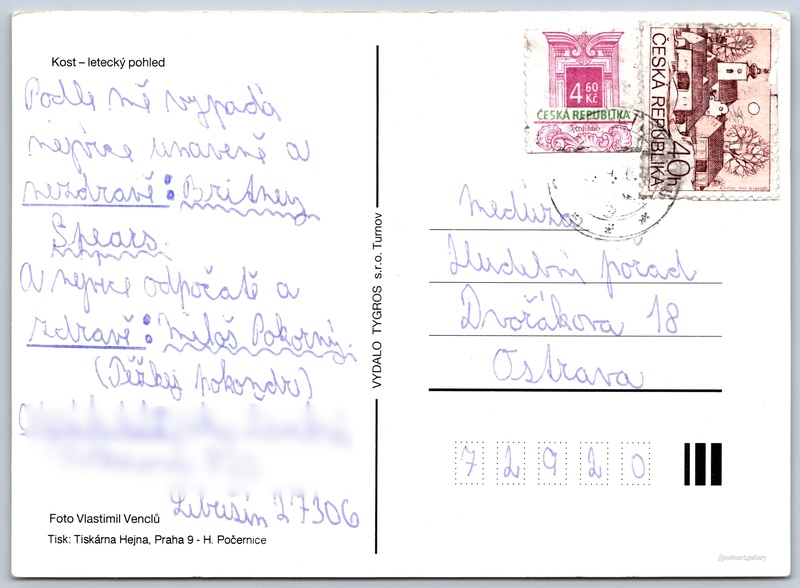 Kost – letecký pohled
Podle mě vypadá
nejvíce unaveně a
nezdravě: Britney
Spears.
A nejvíce odpočatě a
zdravě: Miloš Pokorný.
(Těžkej pokondr)
Libušín 27306
Foto Vlastimil Venclů
Tisk: Tiskárna Hejna, Praha 9 - H. Počernice
VYDALO TYGROS s.r.o. Turnov
4 60
Kč
ČESKÁ REPUBLIKA
ČESKÁ REPUBLIKA
40h
Medúza
Hudební pořad
Dvořákova 18
Ostrava
72920
postcard.gallery